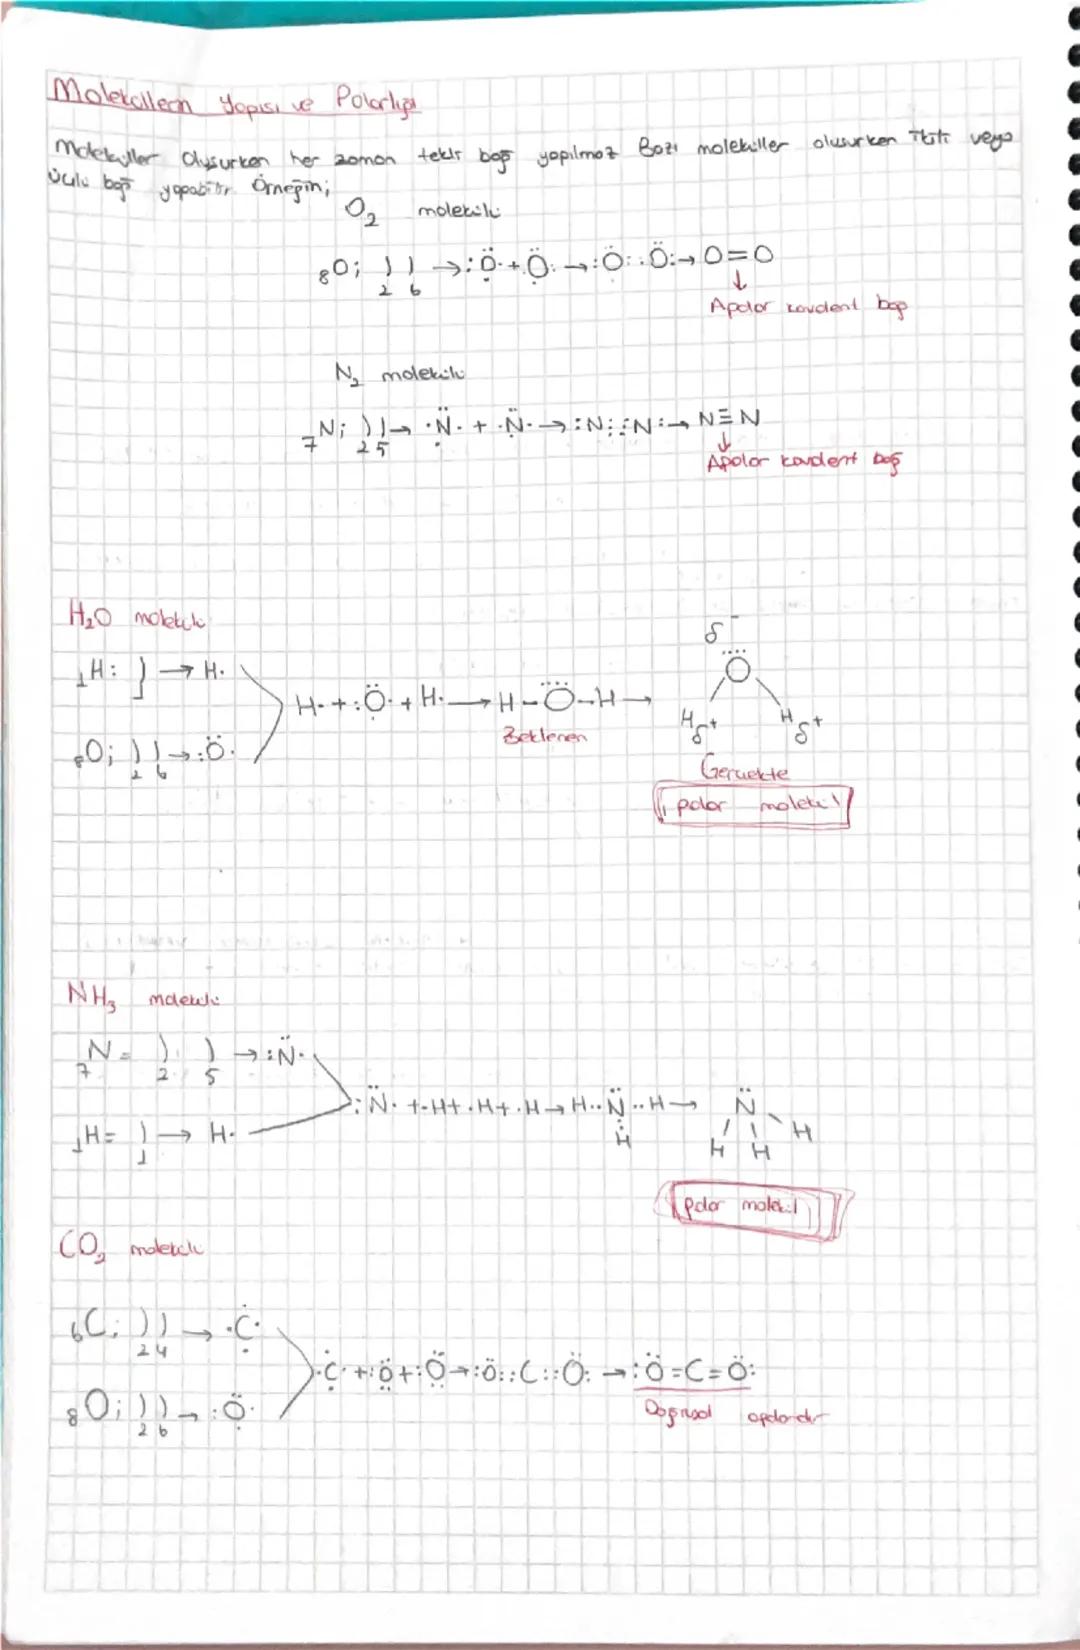 Moleküllerin Yapısı ve Polarlığı
Moleküller Oluşurken her zaman tekli bağ yapılmaz Bazı moleküller oluşurken ikili veya
üçlü bağ yapabilir Örneğin;
O₂ molekülü
₈O; ) ) → :Ö· + Ö: → :Ö::Ö: → O=O
2 6
Apolar kovalent bağ
N₂ molekülü
₇N; ) ) → ·N̈· + ·N̈· → :N⋮⋮N: → N≡N
2 5
Apolar kovalent bağ
H₂O molekülü
δ⁻
₁H: ) → H·
1
H· + :Ö· + H· → H-Ö-H → O
₈O; ) ) → :Ö·
2 6
H δ⁺ H δ⁺
Beklenen
Gerçekte
polar molekül
NH₃ molekülü
₇N = ) ) → :N̈·
2 5
:N̈· + ·H + ·H + ·H → H··N̈··H → N̈
H
₁H = ) → H·
1
H H H
polar molekül
CO₂ molekülü
₆C; ) ) → ·C·
2 4
·C· + :Ö + :Ö → :Ö::C::Ö: → :Ö=C=Ö:
₈O; ) ) → :Ö·
2 6
Doğrusal apolardır